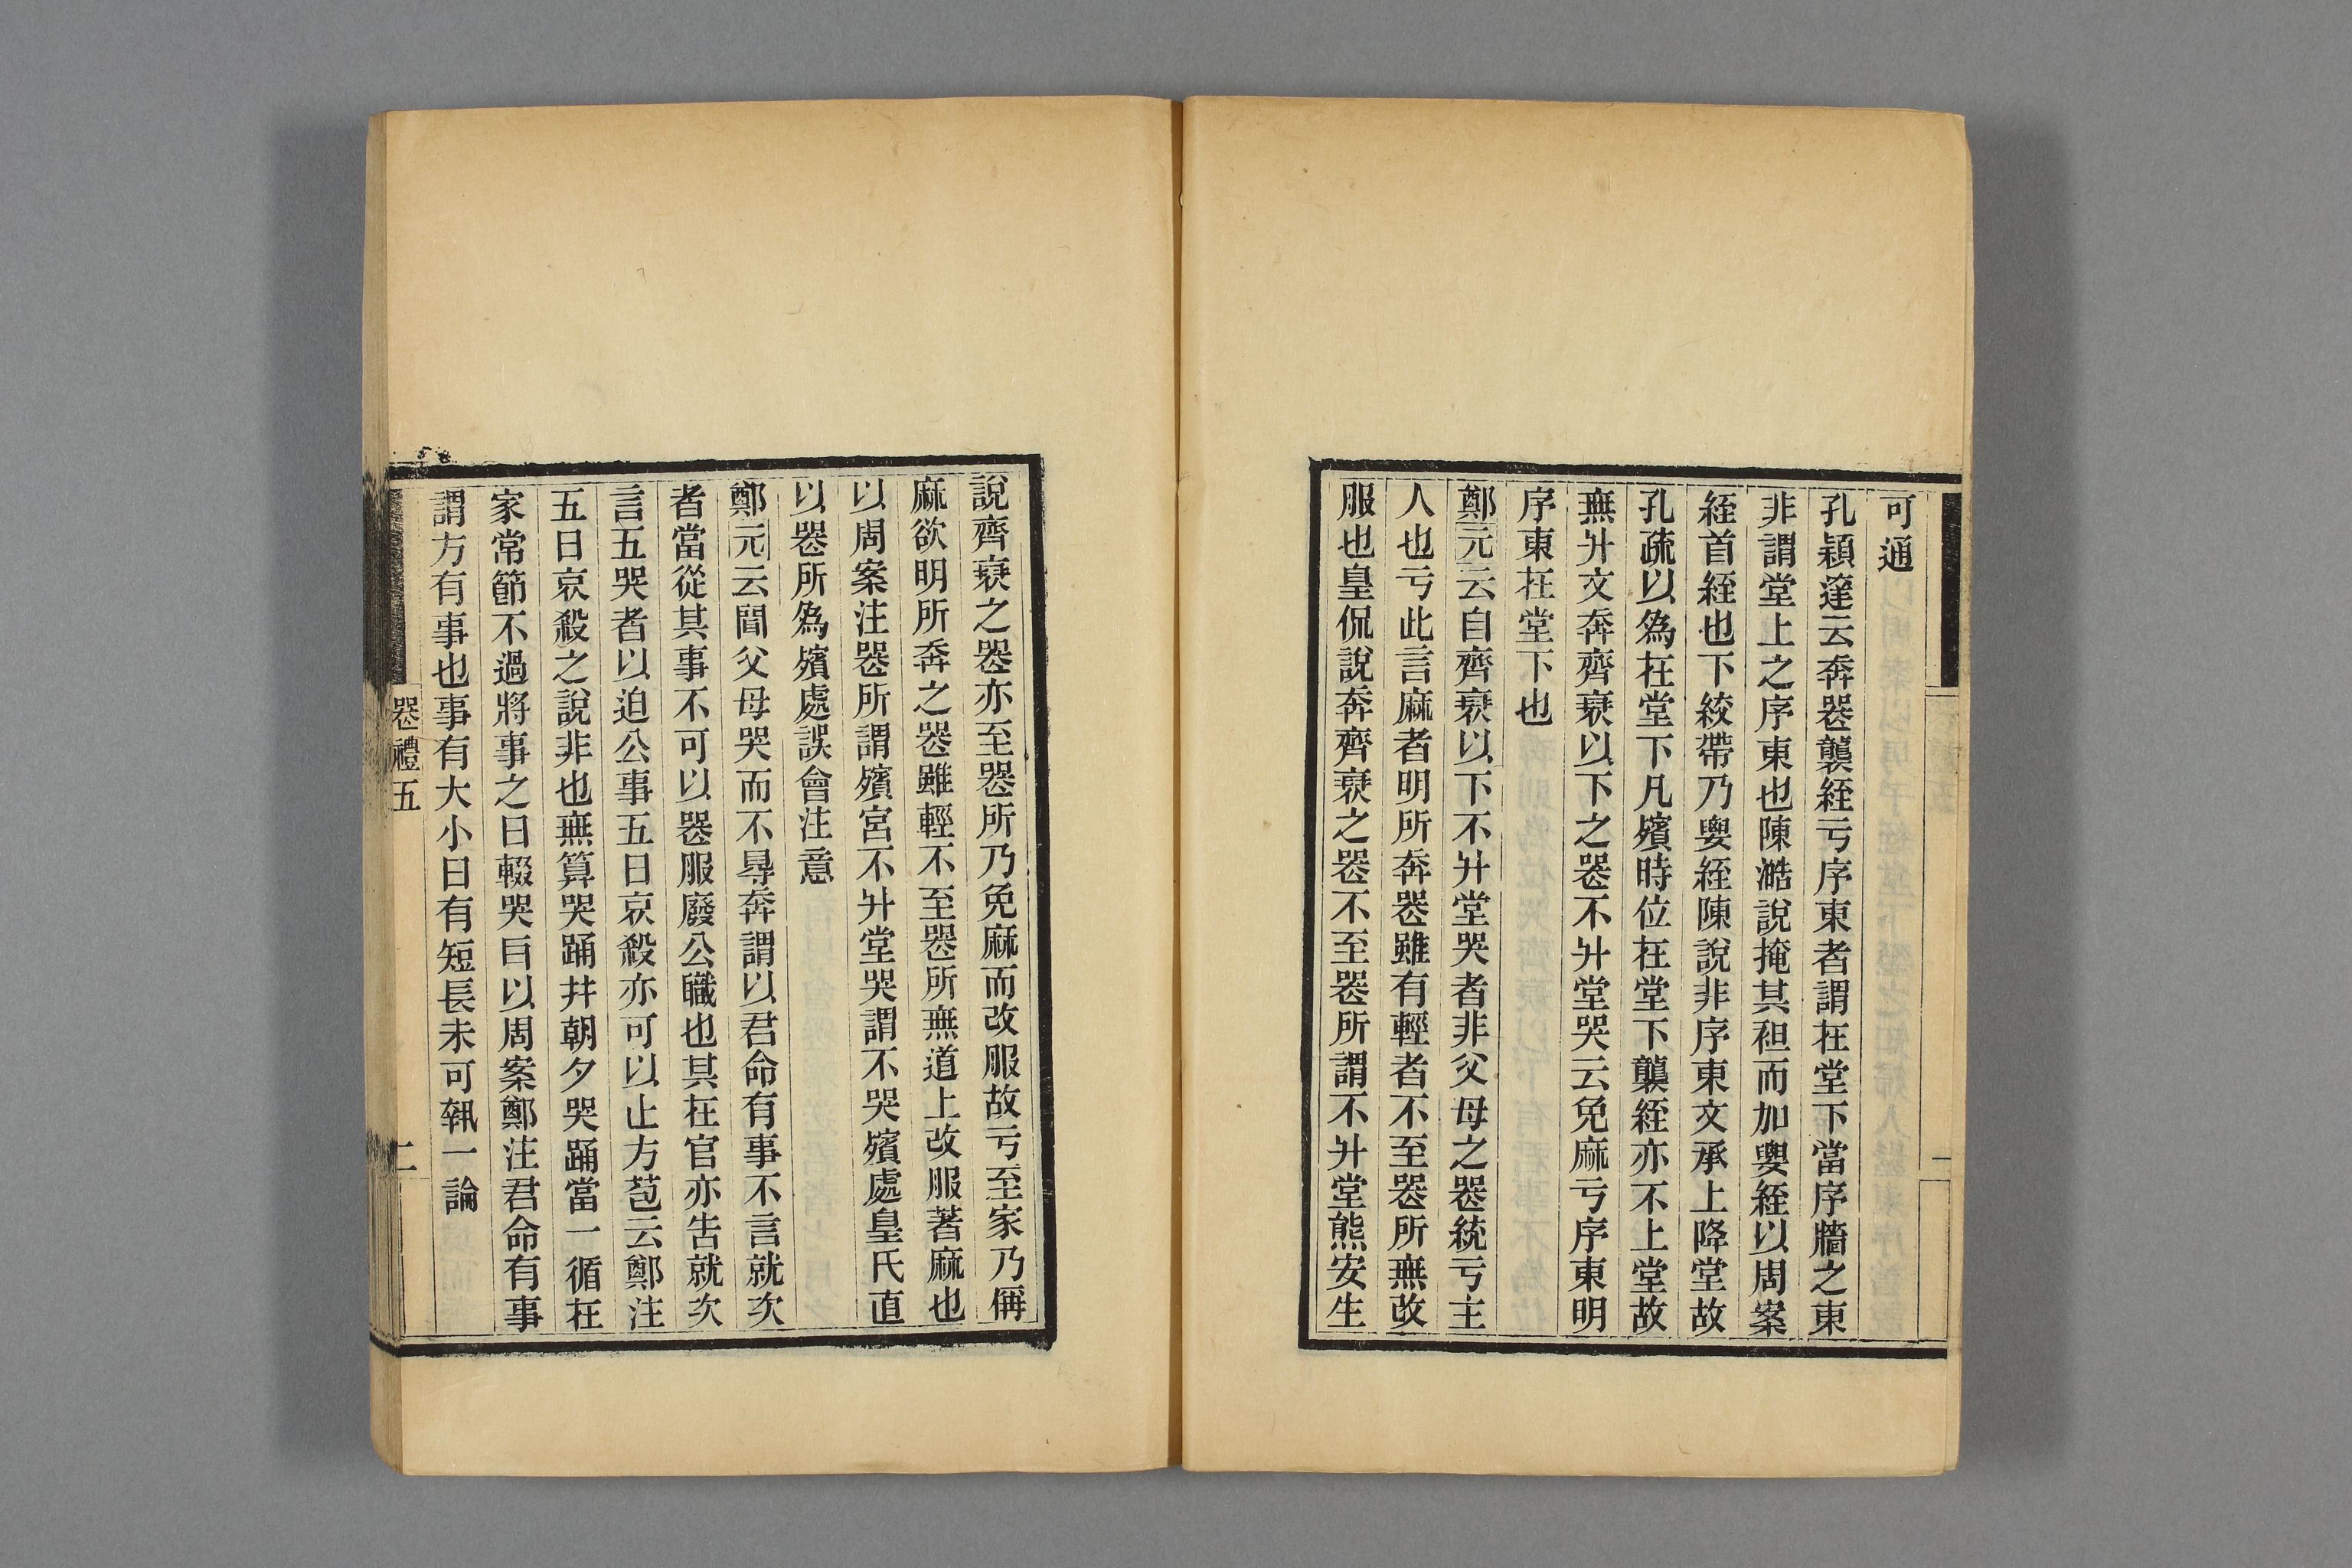 可通
孔穎達云奔喪襲絰亏序東者謂在堂下當序牆之東
非謂堂上之序東也陳澔說掩其袒而加要絰以周案
絰首絰也下絞帶乃要絰陳說非序東文承上降堂故
孔疏以爲在堂下凡殯時位在堂下襲絰亦不上堂故
無升文奔齊衰以下之喪不升堂哭云免麻亏序東明
序東在堂下也
鄭元云自齊衰以下不升堂哭者非父母之喪統亏主
人也亏此言麻者明所奔喪雖有輕者不至喪所無改
服也皇侃說奔齊衰之喪不至喪所謂不升堂熊安生
說齊衰之喪亦至喪所乃免麻而改服故亏至家乃偁
麻欲明所奔之喪雖輕不至喪所無道上改服著麻也
以周案注喪所謂殯宮不升堂哭謂不哭殯處皇氏直
以喪所爲殯處誤會注意
鄭元云聞父母哭而不㝵奔謂以君命有事不言就次
者當從其事不可以喪服廢公職也其在官亦告就次
言五哭者以迫公事五日哀殺亦可以止方苞云鄭注
五日哀殺之說非也無算哭踊幷朝夕哭踊當一循在
家常節不過將事之日輟哭㠯以周案鄭注君命有事
謂方有事也事有大小日有短長未可執一論
喪禮五
二